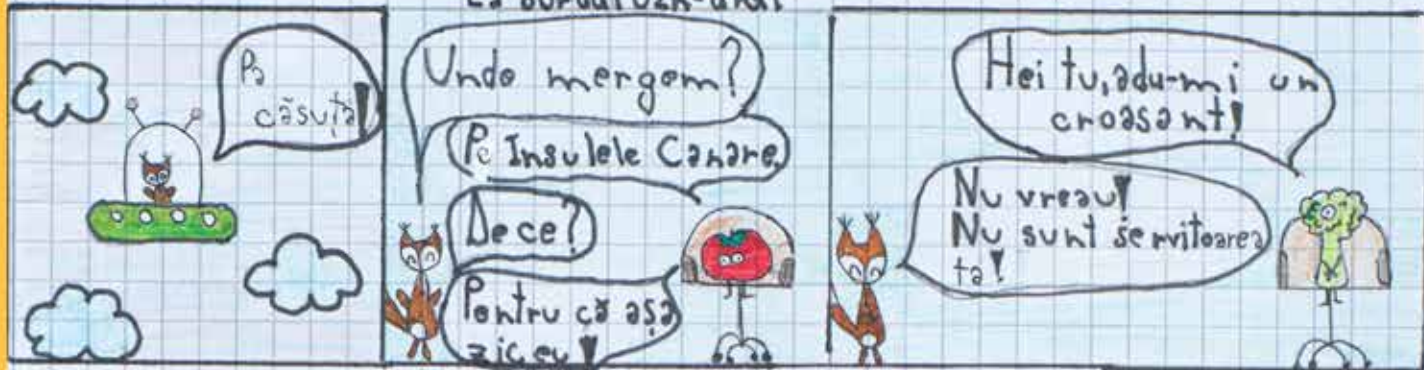 Pa
căsuță!
Unde mergem?
Pe Insulele Canare.
De ce?
Pentru că așa
zic eu!
Hei tu, adu-mi un
croasant!
Nu vreau!
Nu sunt servitoarea
ta!